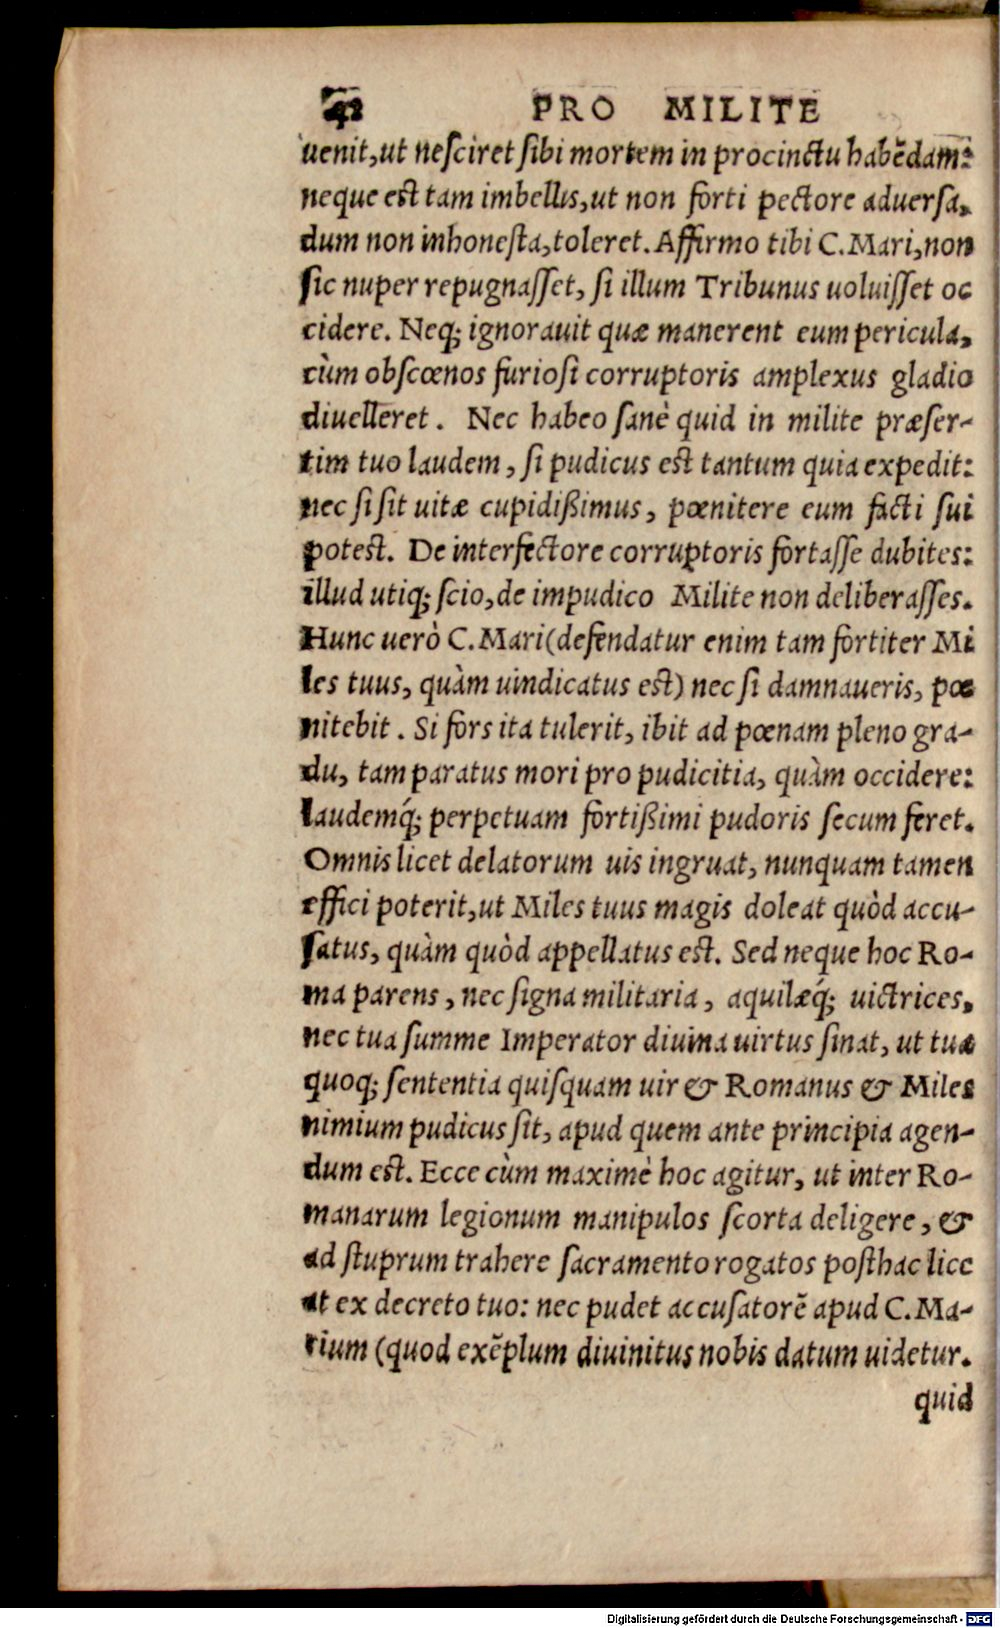 42 PRO MILITE
uenit,ut nesciret sibi mortem in procinctu habēdam:
neque est tam imbellis,ut non forti pectore aduersa,
dum non inhonesta,toleret. Affirmo tibi C. Mari,non
sic nuper repugnasset, si illum Tribunus uoluisset oc
cidere. Neq; ignorauit quæ manerent eum pericula,
cùm obscœnos furiosi corruptoris amplexus gladio
diuelleret. Nec habeo sanè quid in milite præser-
tim tuo laudem, si pudicus est tantum quia expedit:
nec si sit uitæ cupidißimus, pœnitere eum facti sui
potest. De interfectore corruptoris fortasse dubites:
illud utiq; scio,de impudico Milite non deliberasses.
Hunc uerò C. Mari(defendatur enim tam fortiter Mi
les tuus, quàm uindicatus est) nec si damnaueris, pœ
nitebit. Si fors ita tulerit, ibit ad pœnam pleno gra-
du, tam paratus mori pro pudicitia, quàm occidere:
laudemq́; perpetuam fortißimi pudoris secum feret.
Omnis licet delatorum uis ingruat, nunquam tamen
effici poterit,ut Miles tuus magis doleat quòd accu-
satus, quàm quòd appellatus est. Sed neque hoc Ro-
ma parens, nec signa militaria, aquilæq́; uictrices,
nec tua summe Imperator diuina uirtus sinat, ut tua
quoq; sententia quisquam uir & Romanus & Miles
nimium pudicus sit, apud quem ante principia agen-
dum est. Ecce cùm maximè hoc agitur, ut inter Ro-
manarum legionum manipulos scorta deligere, &
ad stuprum trahere sacramento rogatos posthac lice
at ex decreto tuo: nec pudet accusatorē apud C. Ma-
rium (quod exēplum diuinitus nobis datum uidetur.
quid
Digitalisierung gefördert durch die Deutsche Forschungsgemeinschaft - DFG